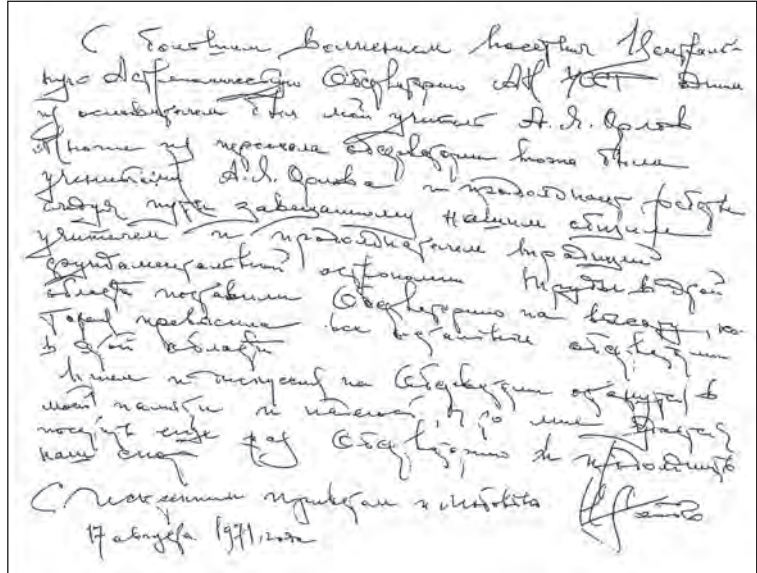 С большим волнением посетил Централь-
ную Астрономическую Обсерваторию АН УССР
основателем был мой учитель А. Я. Орлов
Многие из персонала обсерватории тоже были
учениками А. Я. Орлова и продолжают работы
следуя пути завещанному нашим общим
учителем и продолжателем традиций
фундаментальной астрономии Труды в этой
области поставили Обсерваторию на высоту,
все остальные обсерватории
в этой области
на Обсерватории останутся в
моей памяти и надеюсь, что мне
посетить еще раз Обсерваторию и продолжить
наши
С искренним приветом и любовью
17 августа 1971 года